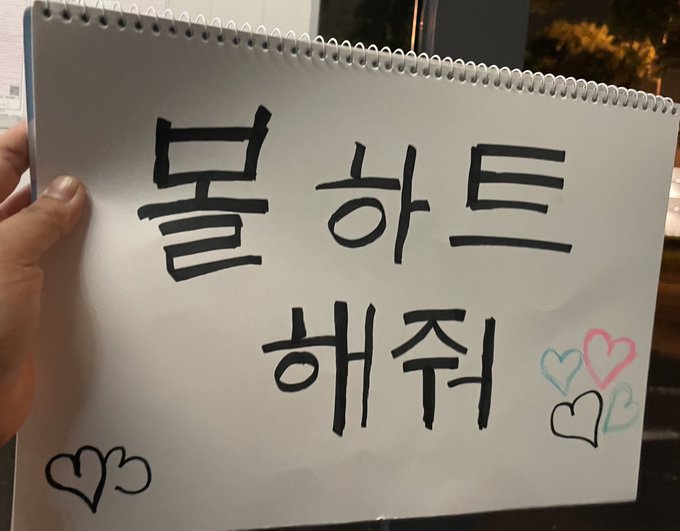 볼하트
해줘